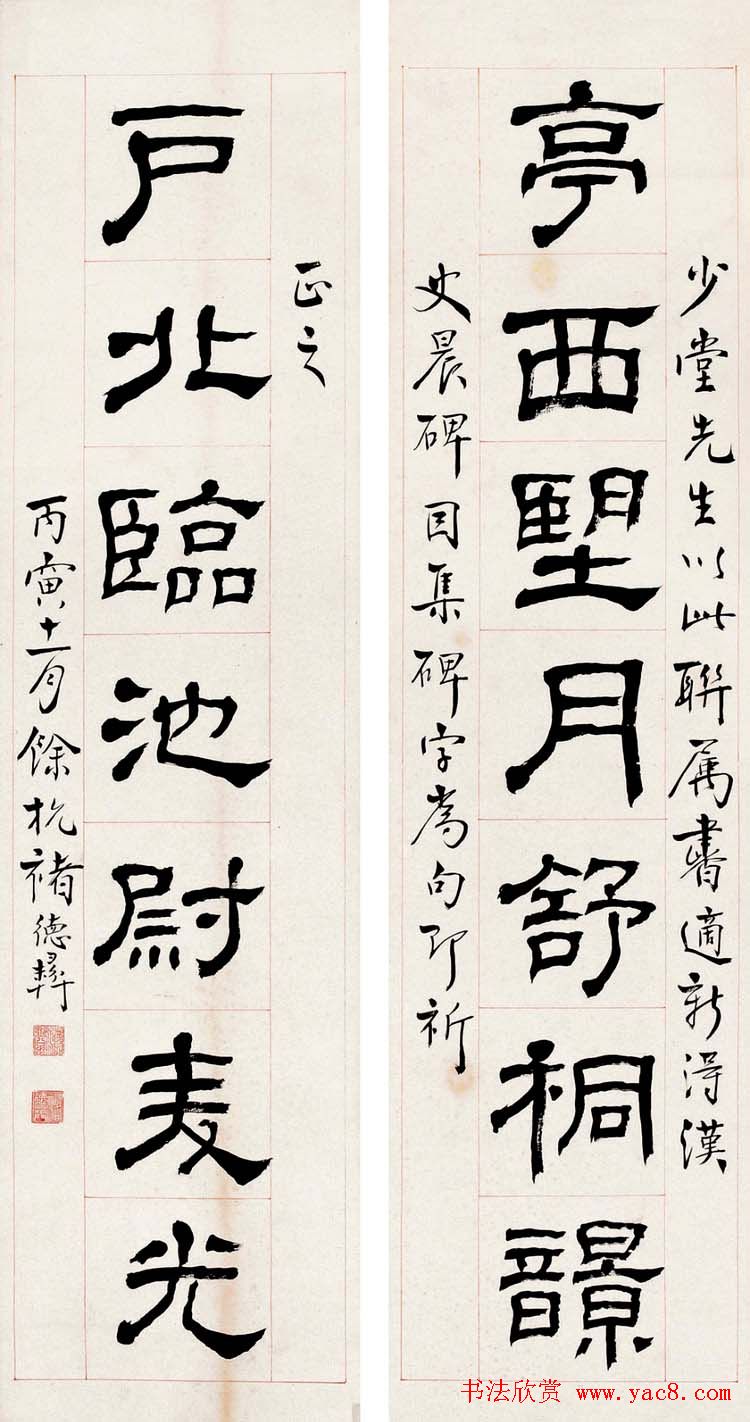 少堂先生以此聯属書適新得漢
亭西望月舒桐韻
史晨碑因集碑字為句即祈
正之
戶北臨池尉麦光
丙寅十一月餘杭褚德彝
书法欣赏 www.yac8.com